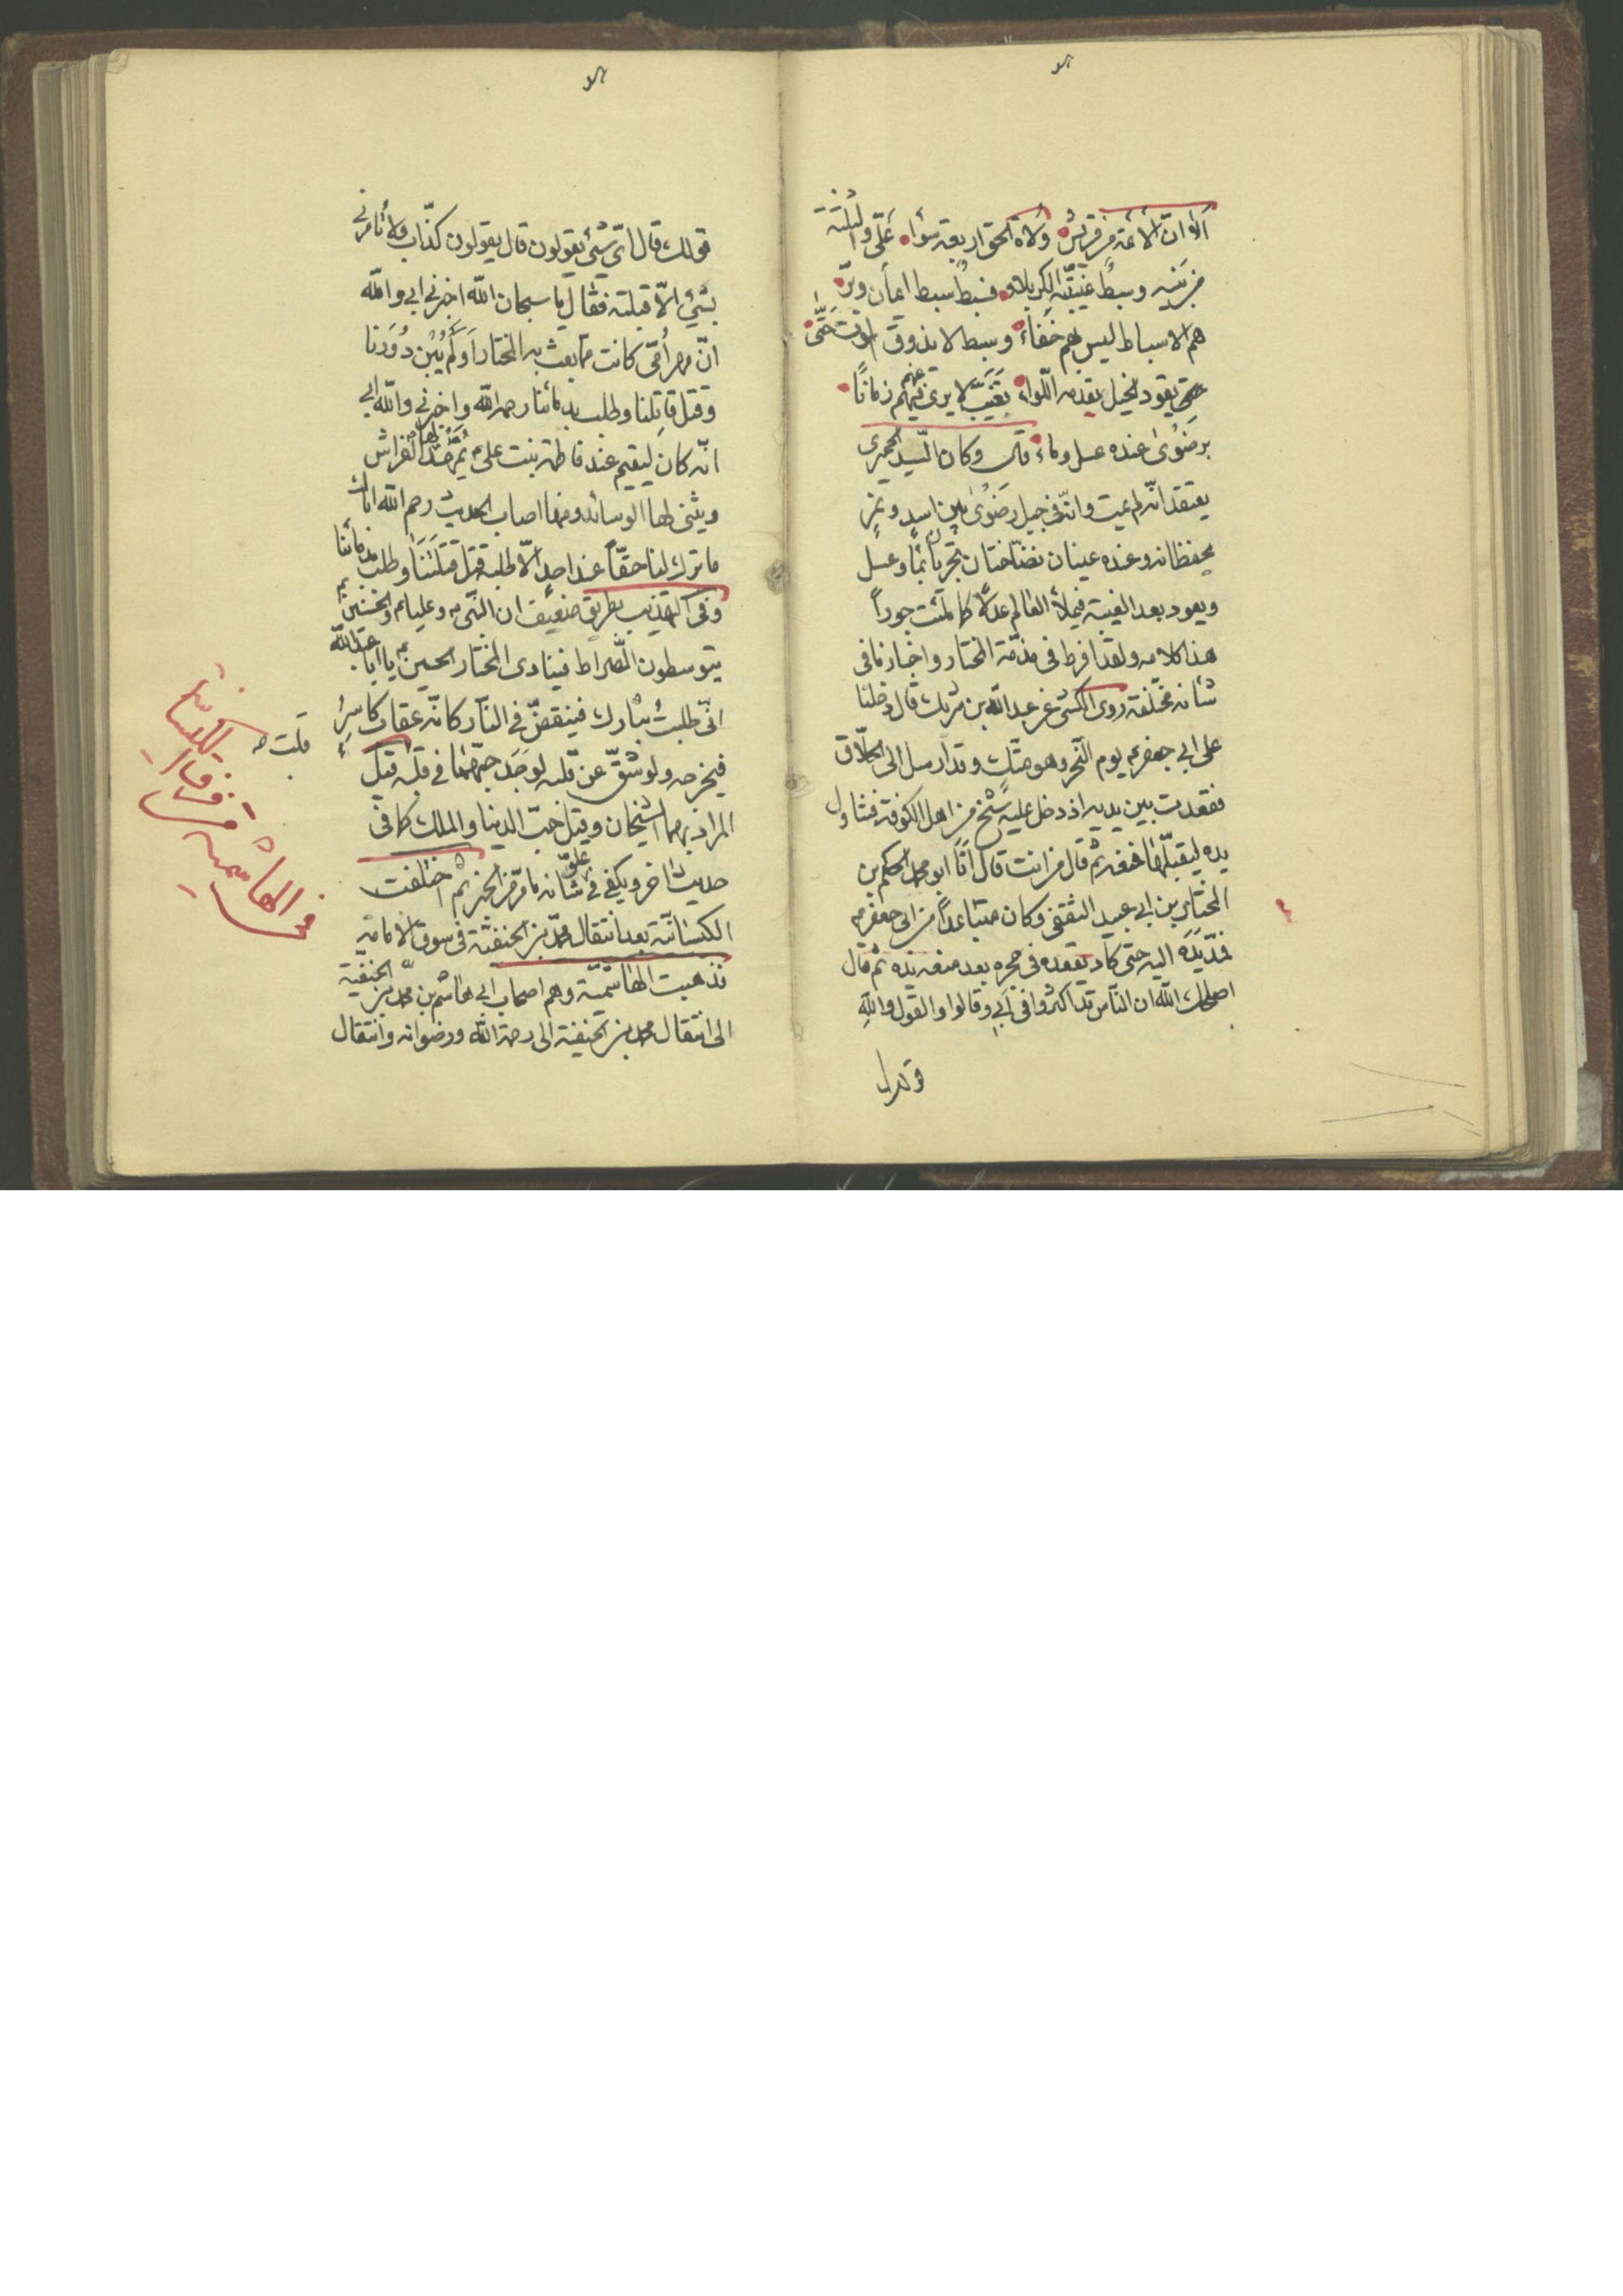 ألا ان الأئمة من قريش ولاة الحق اربعة سواء علي والثلثة
من بنيه وسبط غيبته كربلاء فسبط سبط ايمان وبرّ
هم الاسباط ليس بهم خفاء وسبط لا يذوق الموت حتى
حتى يقود الخيل يقدمه اللواء تغيّب لا يرى فيهم زمانًا
عنهم
برضوى عنده عسل وماء وكان السيد الحميرى
يعتقد انه لم يمت وانه في جبل رضوى بين اسد ونمر
يحفظانه وعنده عينان نضّاختان تجريان ماء وعسل
ويعود بعد الغيبة فيملأ العالم عدلًا كما ملئت جوراً
هذا كلامه ولقد افرط في مذمّة المختار واخبارنا في
شأنه مختلفة روى الكشى عن عبد الله بن شريك قال دخلنا
على ابي جعفر ع يوم النحر وهو متكٍ وقد ارسل الى الحلّاق
فقعدت بين يديه اذ دخل عليه شيخ من اهل الكوفة فتناول
يده ليقبّلها فمنعه ثم قال من انت قال أنا ابو محمد الحكم بن
المختار بن ابي عبيد الثقفى وكان متباعداً من ابى جعفر ع
فمدّ يده اليه حتى كاد يقعده في حجره بعد منعه يده ثم قال
اصلحك الله ان الناس قد اكثروا في ابي وقالوا والقول والله
قولك قال اىّ شيء يقولون قال يقولون كذّاب ولا تأمرنى
بشيء الّا قبلته فقال ياسبحان الله اخبرني ابي والله
انّ مهر أمّى كانت مما بعث به المختار أولم يبن دورنا
وقتل قاتلنا وطلب بدمائنا رحمه الله واخبرنى والله ابي
انّه كان ليقيم عند فاطمة بنت علي ع يمهد لها الفراش
ويثنى لها الوسائد ومنها اصاب الحديث رحم الله اباك
ما ترك لنا حقّاً عند احد الّا طلبه قتل قتلتنا وطلب بدمائنا
وفى التهذيب بطريق ضعيف ان النبى ص وعليا ع والحسنين ع
يتوسطون الصراط فينادى المختار الحسين ع يا ابا عبد الله
انّى طلبت بثارك فينقضّ في النار كانّه عقاب كاسرٌ
فيخرجه ولو شقّ عن قلبه لوجد حبّهما في قلبه قيل
قلت
المراد بهما الشيخان وقيل حبّ الدنيا والملك كما في
حديث اخر ويكفى في علوّ شأنه ما مرّ من الخبر ثم اختلفت
الكيسانيّة بعد انتقال محمد بن الحنفيّة في سوق الامامة
فذهبت الهاشميّة وهم اصحاب ابي هاشم بن محمد بن الحنفيّة
الى انتقال محمد بن الحنفية الى رحمة الله ورضوانه وانتقال